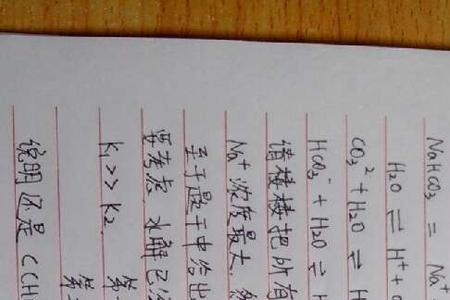 NaHCO₃ = Na⁺
H₂O ⇌ H⁺ +
CO₃²⁻ + H₂O ⇌ H
HCO₃⁻ + H₂O ⇌ H
请楼楼把所有
Na⁺浓度最大.
子于是干中给出
要考虑 水解已
K₁ >> K₂ 第一
第
说明 仅是 C(CH